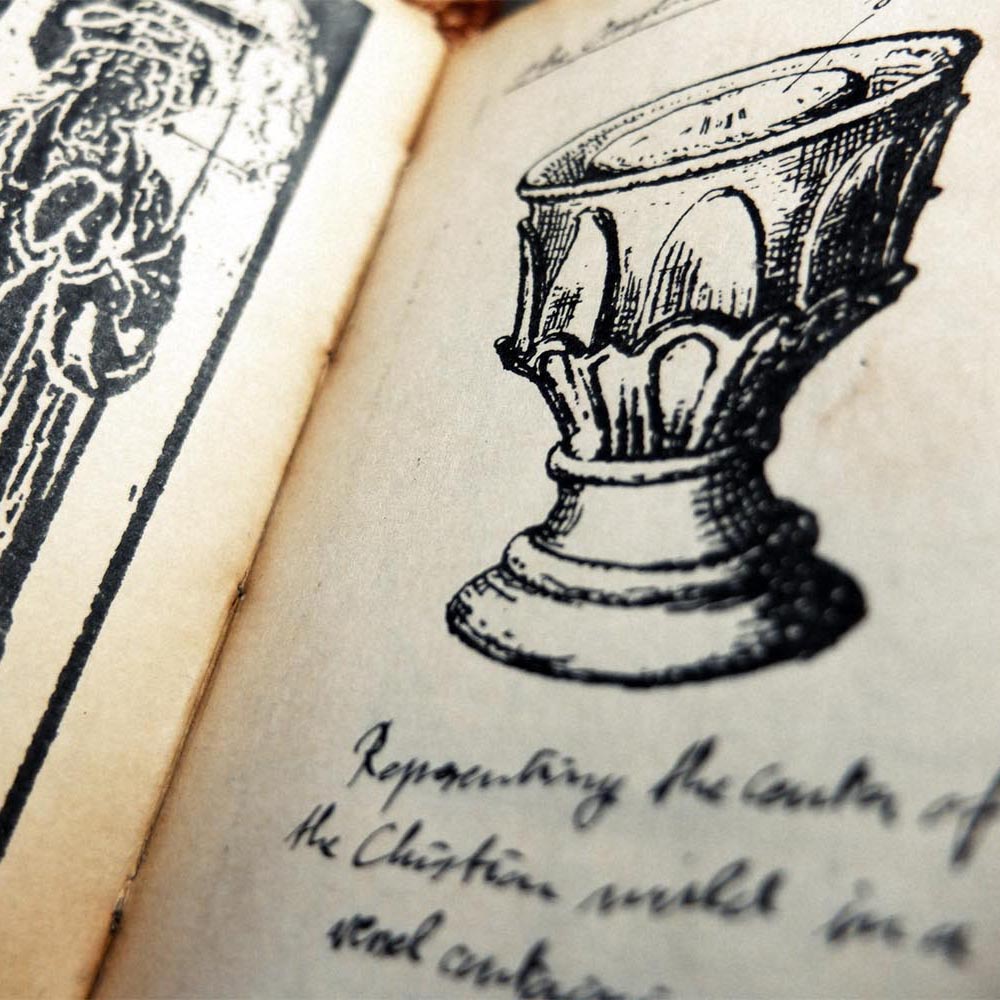 the
Representing the center of
the Christian world in a
vessel containi